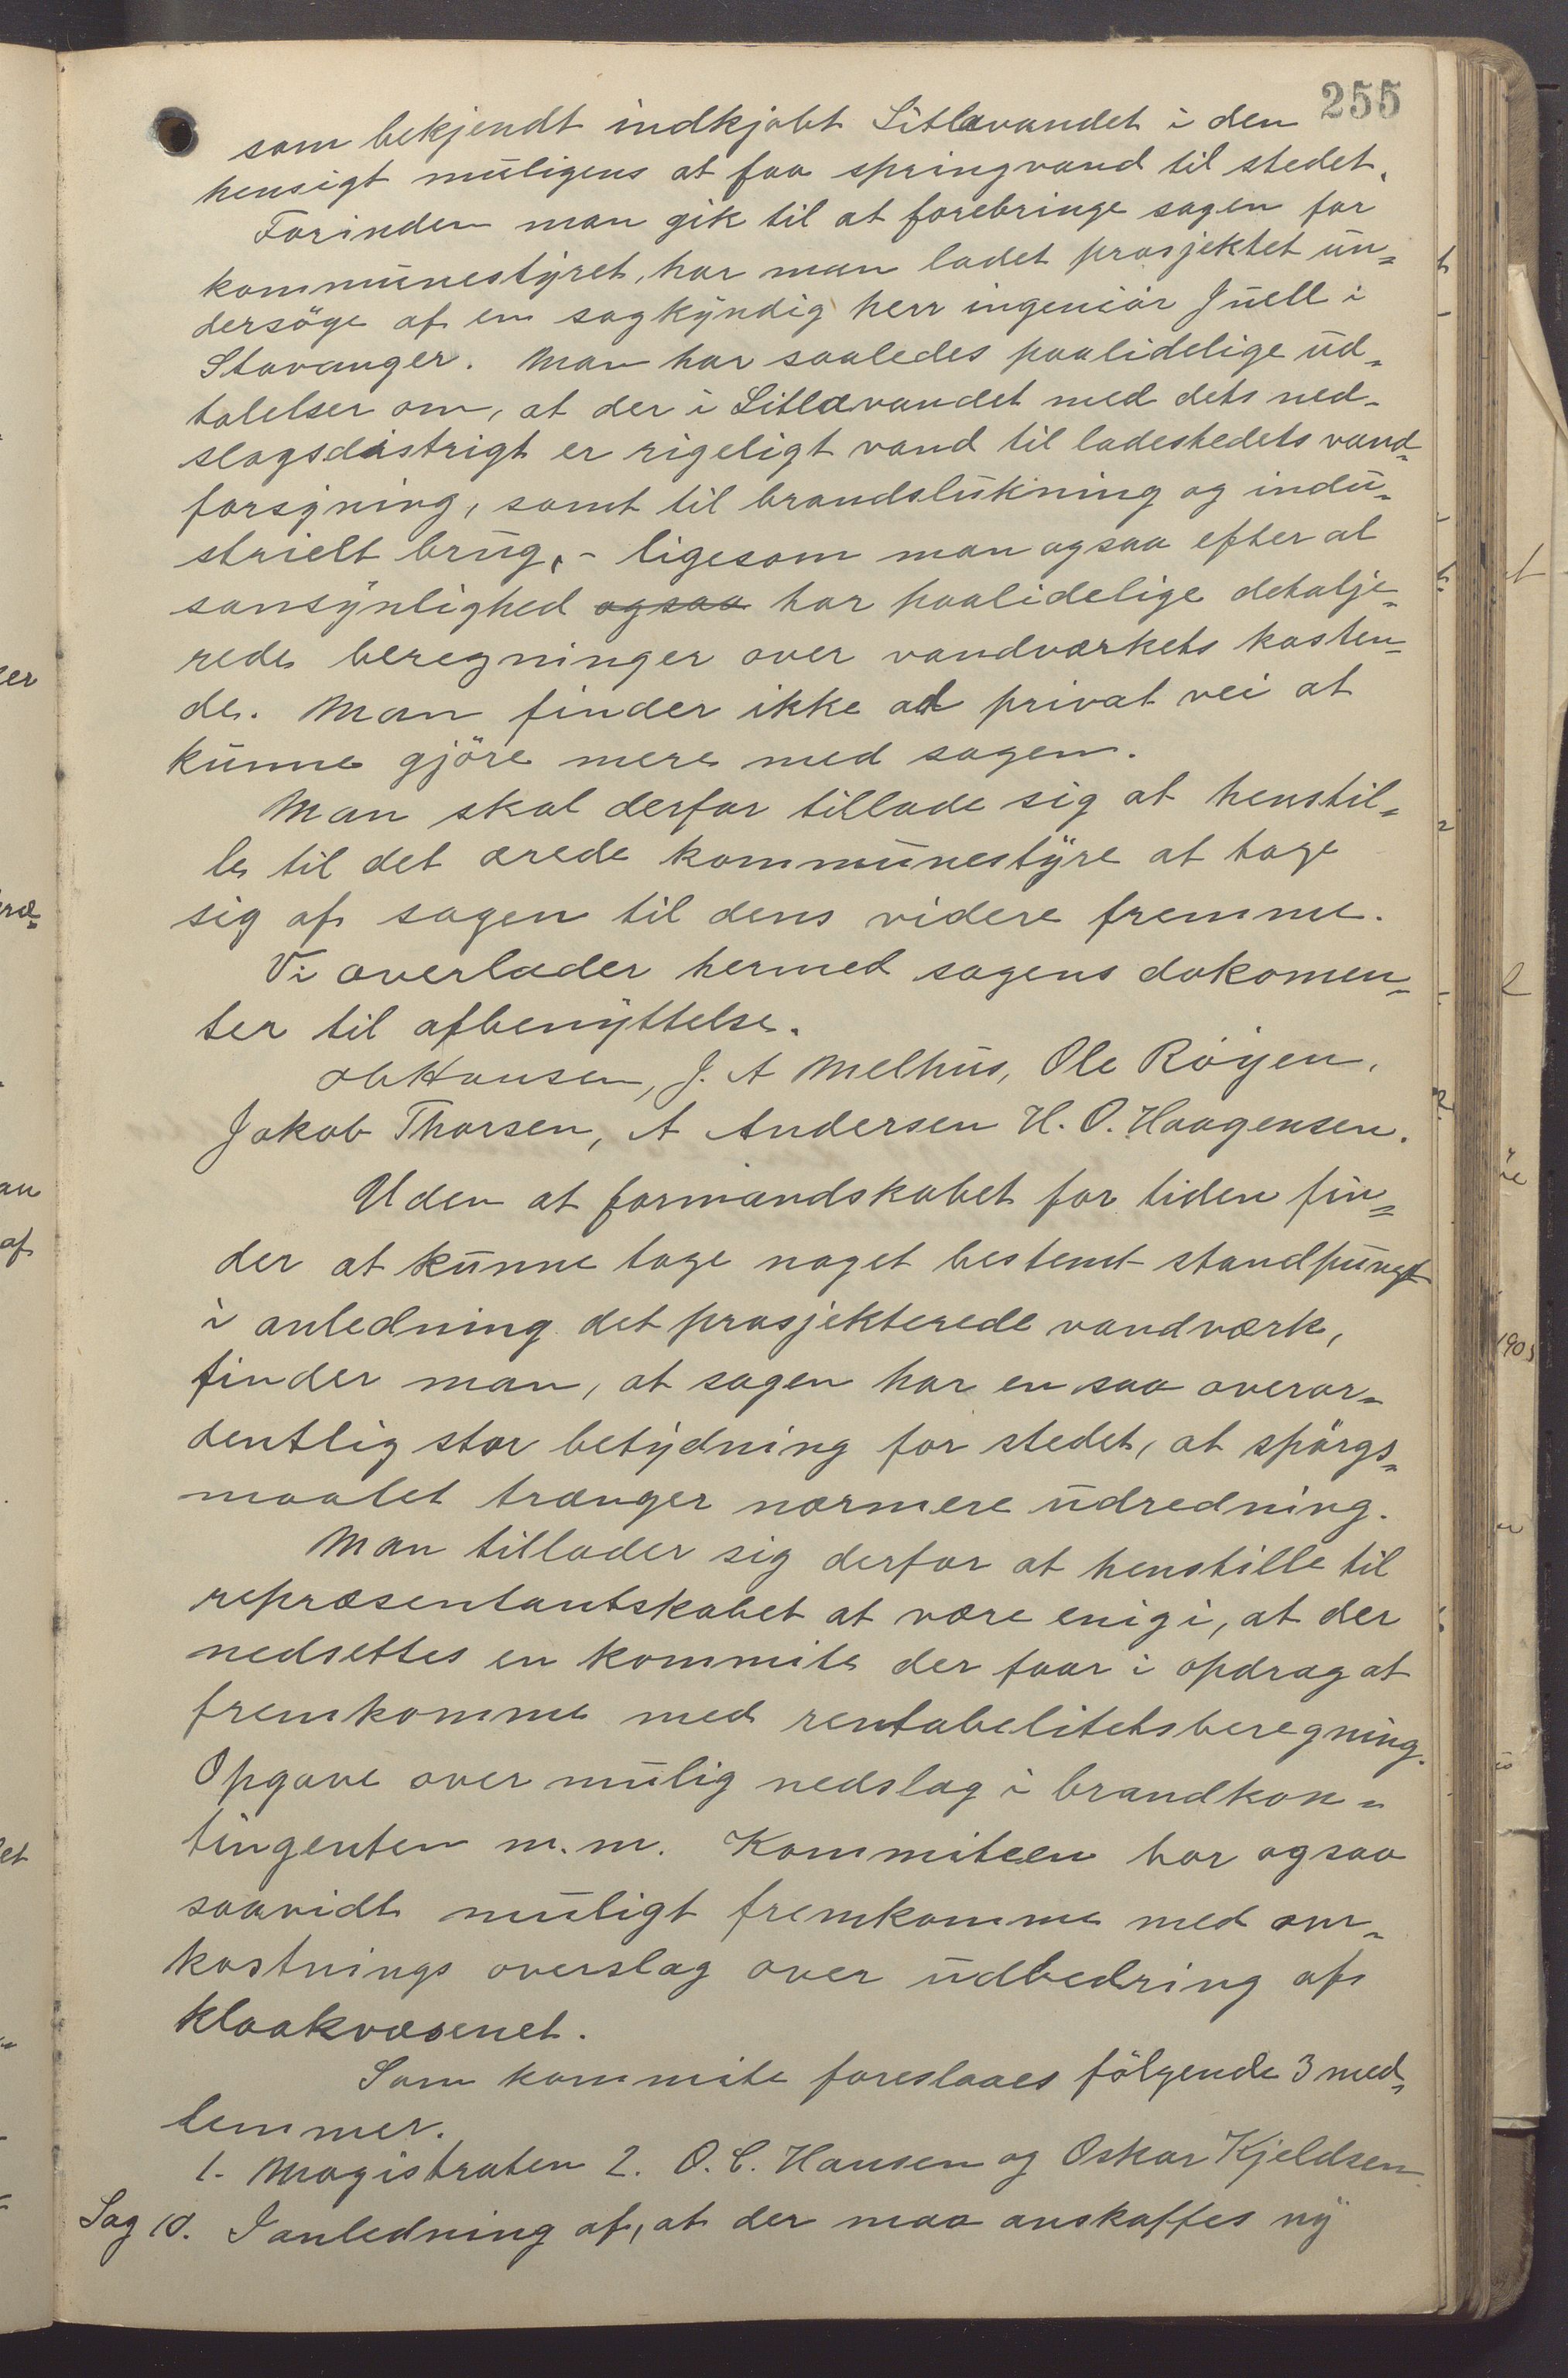 255
som bekjendt indkjøbt Litlavandet i den
hensigt muligens at faa springvand til stedet.
Forinden man gik til at forebringe sagen for
kommunestyret, har man ladet prosjektet un-
dersöge af en sagkyndig herr ingeniör Juell i
Stavanger. Man har saaledes paalidelige ud-
talelser om, at der i Litlavandet med dets ned-
slagsdistrigt er rigeligt vand til ladestedets vand-
forsyning, samt til brandslukning og indu-
strielt brug, - ligesom man ogsaa efter al
sansynlighed ogsaa har paalidelige detalje-
rede beregninger over vandværkets kosten-
de. Man finder ikke ad privat vei at
kunne gjöre mere med sagen.
Man skal derfor tillade sig at henstil-
le til det ærede kommunestyre at tage
sig af sagen til dens videre fremme.
Vi overlader hermed sagens dokomen-
ter til afbenyttelse.
Hansen, J. A Melhus, Ole Röyen,
Jakob Thorsen, A Andersen H. O. Haagensen.
Uden at formandskabet for tiden fin-
der at kunne tage noget bestemt standpungt
i anledning det prosjekterede vandværk,
finder man, at sagen har en saa overor-
dentlig stor betydning for stedet, at spörgs-
maalet trænger nærmere udredning.
Man tillader sig derfor at henstille til
repræsentantskabet at være enig i, at der
nedsettes en kommite der faar i opdrag at
fremkomme med rentabelitetsberegning.
Opgave over mulig nedslag i brandkon-
tingenten m.m. Kommiteen har ogsaa
saavidt muligt fremkomme med om-
kostnings overslag over udbedring af
kloakvæsenet.
Som kommite foreslaaes fölgende 3 med-
lemmer.
1. Magistraten 2. O. C. Hansen og Oskar Kjeldsen
Sag 10. I anledning af, at der maa anskaffes ny